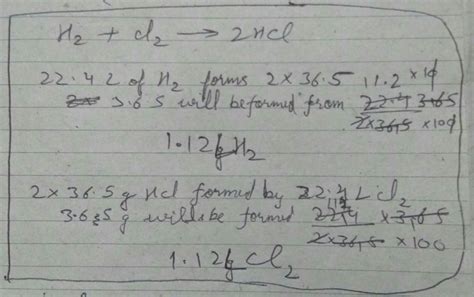 H2 + Cl2 → 2HCl
22.4 L of H2 forms 2 x 36.5
3.65 will be formed from 22.4 3.65
2x36.5 x100
1.12 H2
2 x 36.5 g HCl formed by 22.4 L Cl2
3.65 g will be formed 22.4 x 3.65
2x36.5 x 100
1.12 Cl2